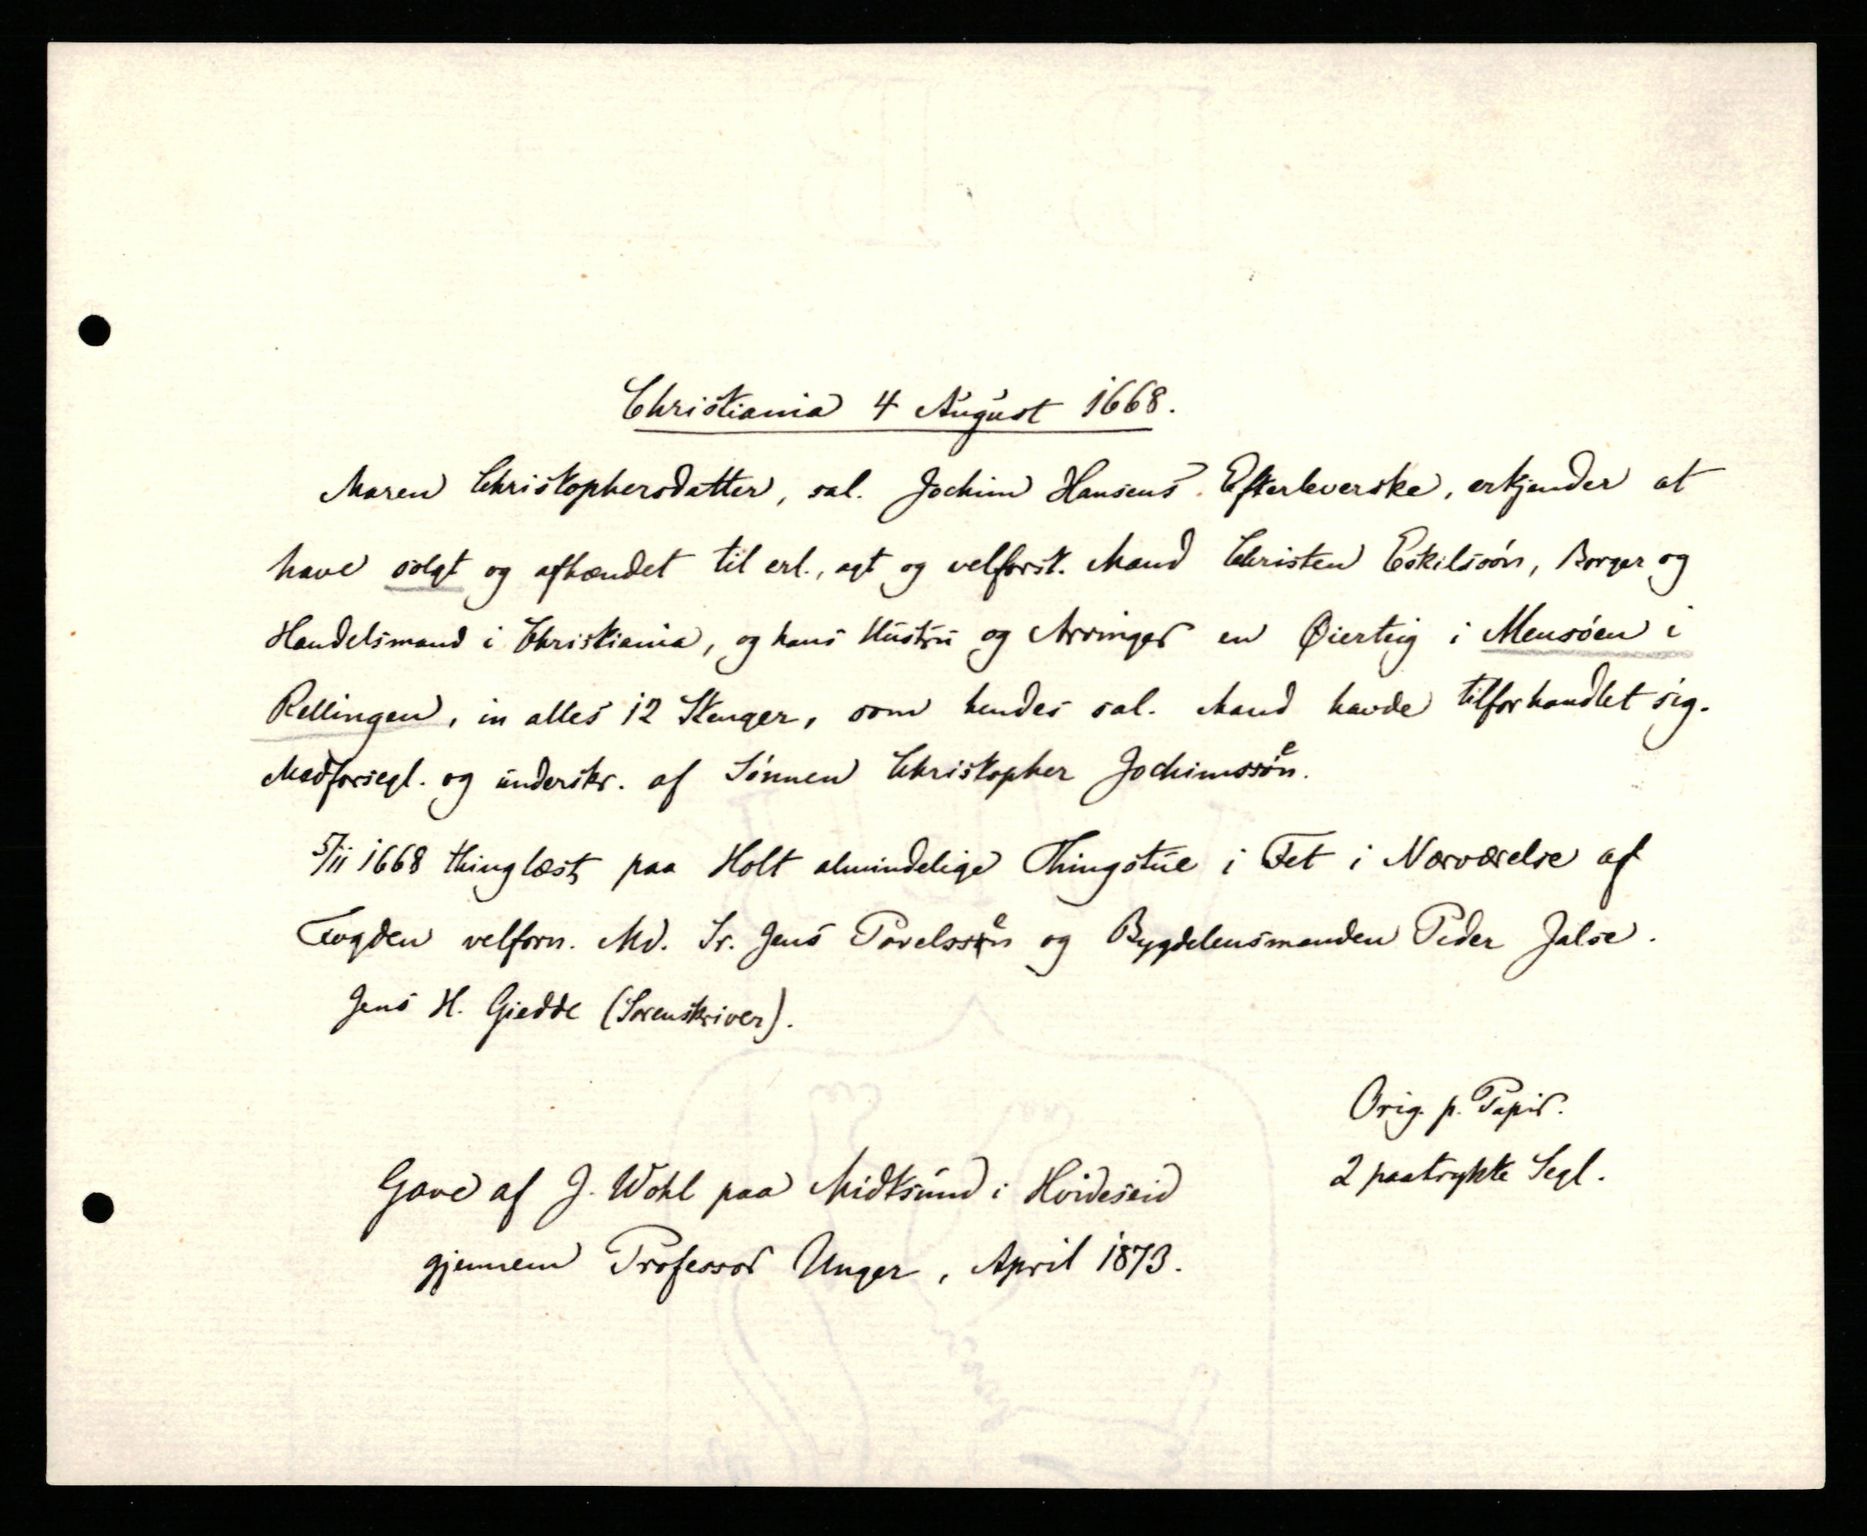 Christiania 4 August 1668.
Maren Christophersdatter, sal. Jochim Hansens Efterleverske, erkjender at
have solgt og afhændet til erl., agt og velforst. Mand Christen Eskilssøn, Borger og
Handelsmand i Christiania, og hans Hustru og Arvinger en Øierteig i Mensøen i
Rellingen, in alles 12 Stenger, som hendes sal. Mand havde tilforhandlet sig.
Medforsegl. og underskr. af Sønnen Christopher Jochimssøen.
5/11 1668 thinglæst paa Holt almindelige Thingstue i Fet i Nærværelse af
Fogden velforn. Md. Sr. Jens Povelssen og Bygdelensmanden Peder Jalse.
Jens H. Giedde (Sorenskriver).
Orig. p. Papir.
2 paatrykte Segl.
Gave af J. Wohl paa Midtsund i Hvideseid
gjennem Professor Unger, April 1873.